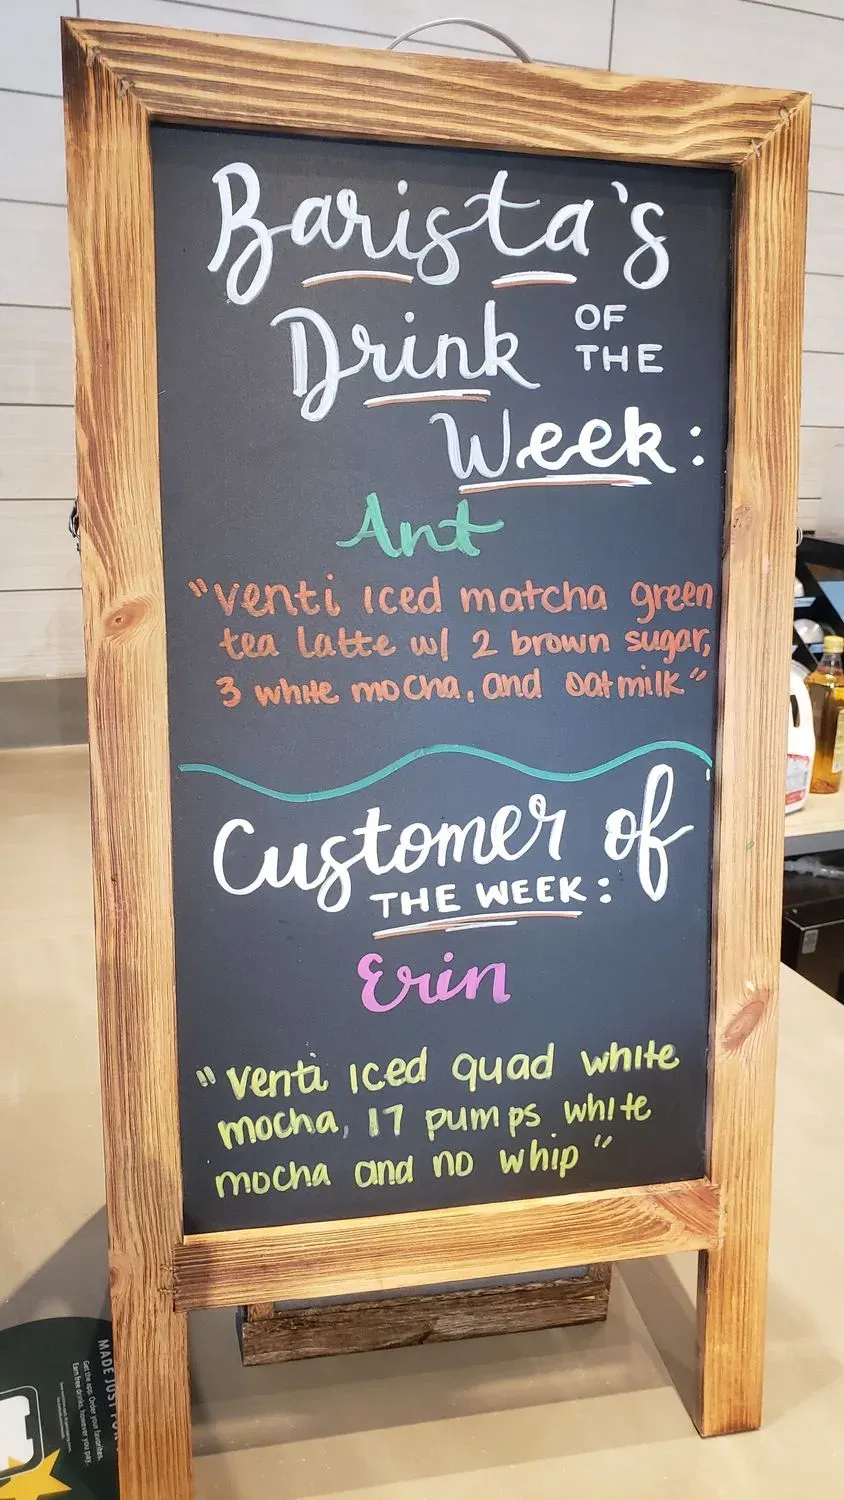 Barista's
Drink OF THE
Week:
Ant
"venti iced matcha green
tea latte w/ 2 brown sugar,
3 white mocha, and oatmilk"
Customer of
THE WEEK:
Erin
"venti iced quad white
mocha, 17 pumps white
mocha and no whip"
MADE JUST FOR
Get the app. Order your favorites.
Earn free drinks, however you pay.